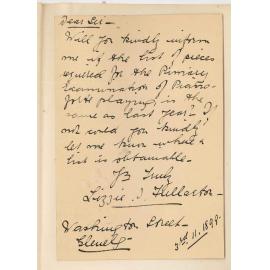 Dear Sir —
Will you kindly inform
me if the list of pieces
required for the Primary
Examination of Piano-
forte playing is the
same as last year? If
not could you kindly
let me know where a
list is obtainable.
Yrs truly
Lizzie J. Fullarton.
Washington Street
Glenelg
3rd 11. 1898.